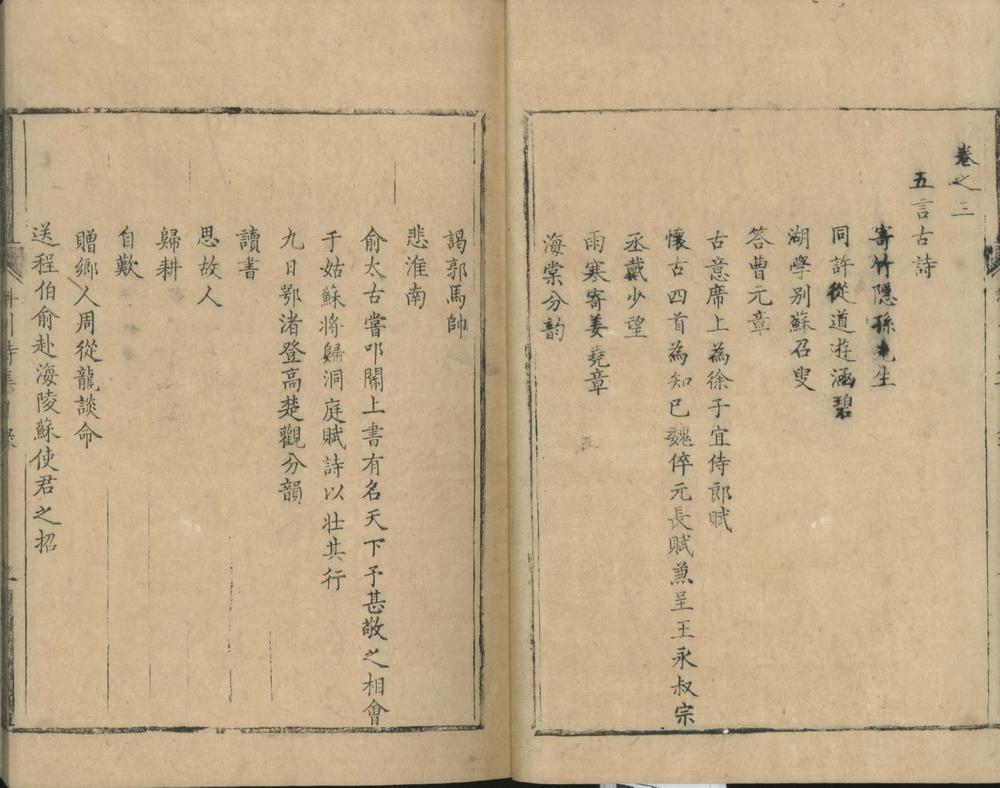 卷之三
五言古詩
寄竹隱孫先生
同許從道遊涵碧
湖學別蘇召叟
答曹元章
古意席上為徐子宜侍郎賦
懷古四首為知已魏倅元長賦兼呈王永叔宗
丞戴少望
雨寒寄姜堯章
海棠分韵
謁郭馬帥
悲淮南
俞太古嘗叩閽上書有名天下予甚敬之相會
于姑蘇将歸洞庭賦詩以壮其行
九日鄂渚登高楚觀分韻
讀書
思故人
歸耕
自歎
贈鄉人周從龍談命
送程伯俞赴海陵蘇使君之招